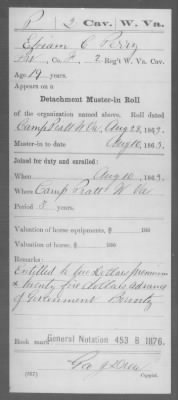 P 2 Cav. W. Va.
Efriam C Perry
Pvt, Co. , 2 Reg't W. Va. Cav.
Age 19 years.
Appears on a
Detachment Muster-in Roll
of the organization named above. Roll dated
Camp Piatt W Va, Aug 23, 1863.
Muster-in to date Aug 10, 1863.
Joined for duty and enrolled:
When Aug 10, 1863.
Where Camp Piatt W Va
Period 3 years.
Valuation of horse equipments, $ 186
Valuation of horse, $ 186
Remarks:
Entitled to five dollars premium
& twenty five dollars advance
of Government Bounty
Book mark: General Notation 453 B 1876.
Geo J Drew
(357) Copyist.